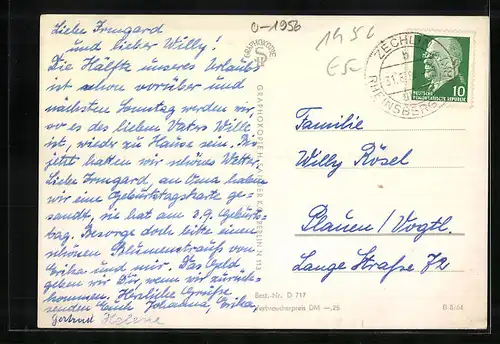 Liebe Irmgard
und lieber Willy!
Die Hälfte unseres Urlaubs
ist schon vorüber und
nächsten Sonntag werden wir,
wo es des lieben Vaters Wille
ist, wieder zu Hause sein. Bis
jetzt hatten wir schönes Wetter.
Liebe Irmgard, an Oma haben
wir eine Geburtstagskarte ge-
sandt, sie hat am 3.9. Geburts-
tag. Besorge doch bitte einen
schönen Blumenstrauß von
Erika und mir. Das Geld
geben wir Dir, wenn wir zurück-
kommen. Herzliche Grüße
senden Euch Johanna, Erika,
Gertrud Helene
0-1956
1456
GRAPHOKOPIE
GRAPHOKOPIE H. SANDER KG. BERLIN N 113
ZECHLIN
RHEINSBERG
10
DEUTSCHE
DEMOKRATISCHE REPUBLIK
Familie
Willy Rösel
Plauen/Vogtl.
Lange Straße 72
Best.-Nr. D 717
Verbraucherpreis DM —,25